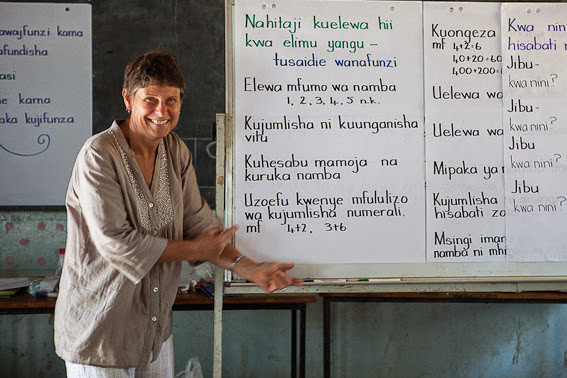 awajfunzi kama
afundisha
asi
ne kama
aka kujifunza
Nahitaji kuelewa hii
kwa elimu yangu –
tusaidie wanafunzi
Elewa mfumo wa namba
1, 2, 3, 4, 5 n.k.
Kujumlisha ni kuunganisha
vitu
Kuhesabu mamoja na
kuruka namba
Uzoefu kwenye mfululizo
wa kujumlisha numerali.
mf 4+2, 3+6
Kuongeza
mf 4+2=6
40+20=60
400+200=
Uelewa wa
Uelewa wa
Mipaka ya
Kujumlisha
hisabati zo
Msingi imar
namba ni mhi
Kwa nin
hisabati
Jibu-
kwa nini?
Jibu-
kwa nini?
Jibu
Kwa nini?
Jibu
kwa nini?